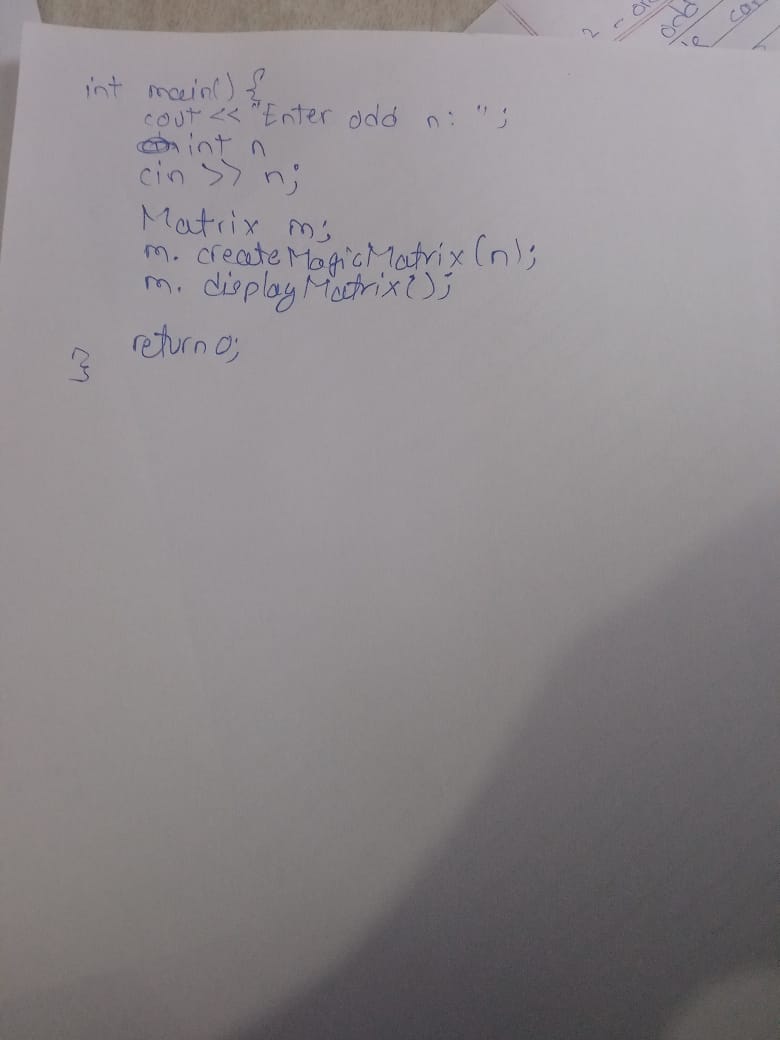 int main() {
cout << "Enter odd n: ";
int n
cin >> n;
Matrix m;
m. createMagicMatrix(n);
m. displayMatrix();
return 0;
}
odd